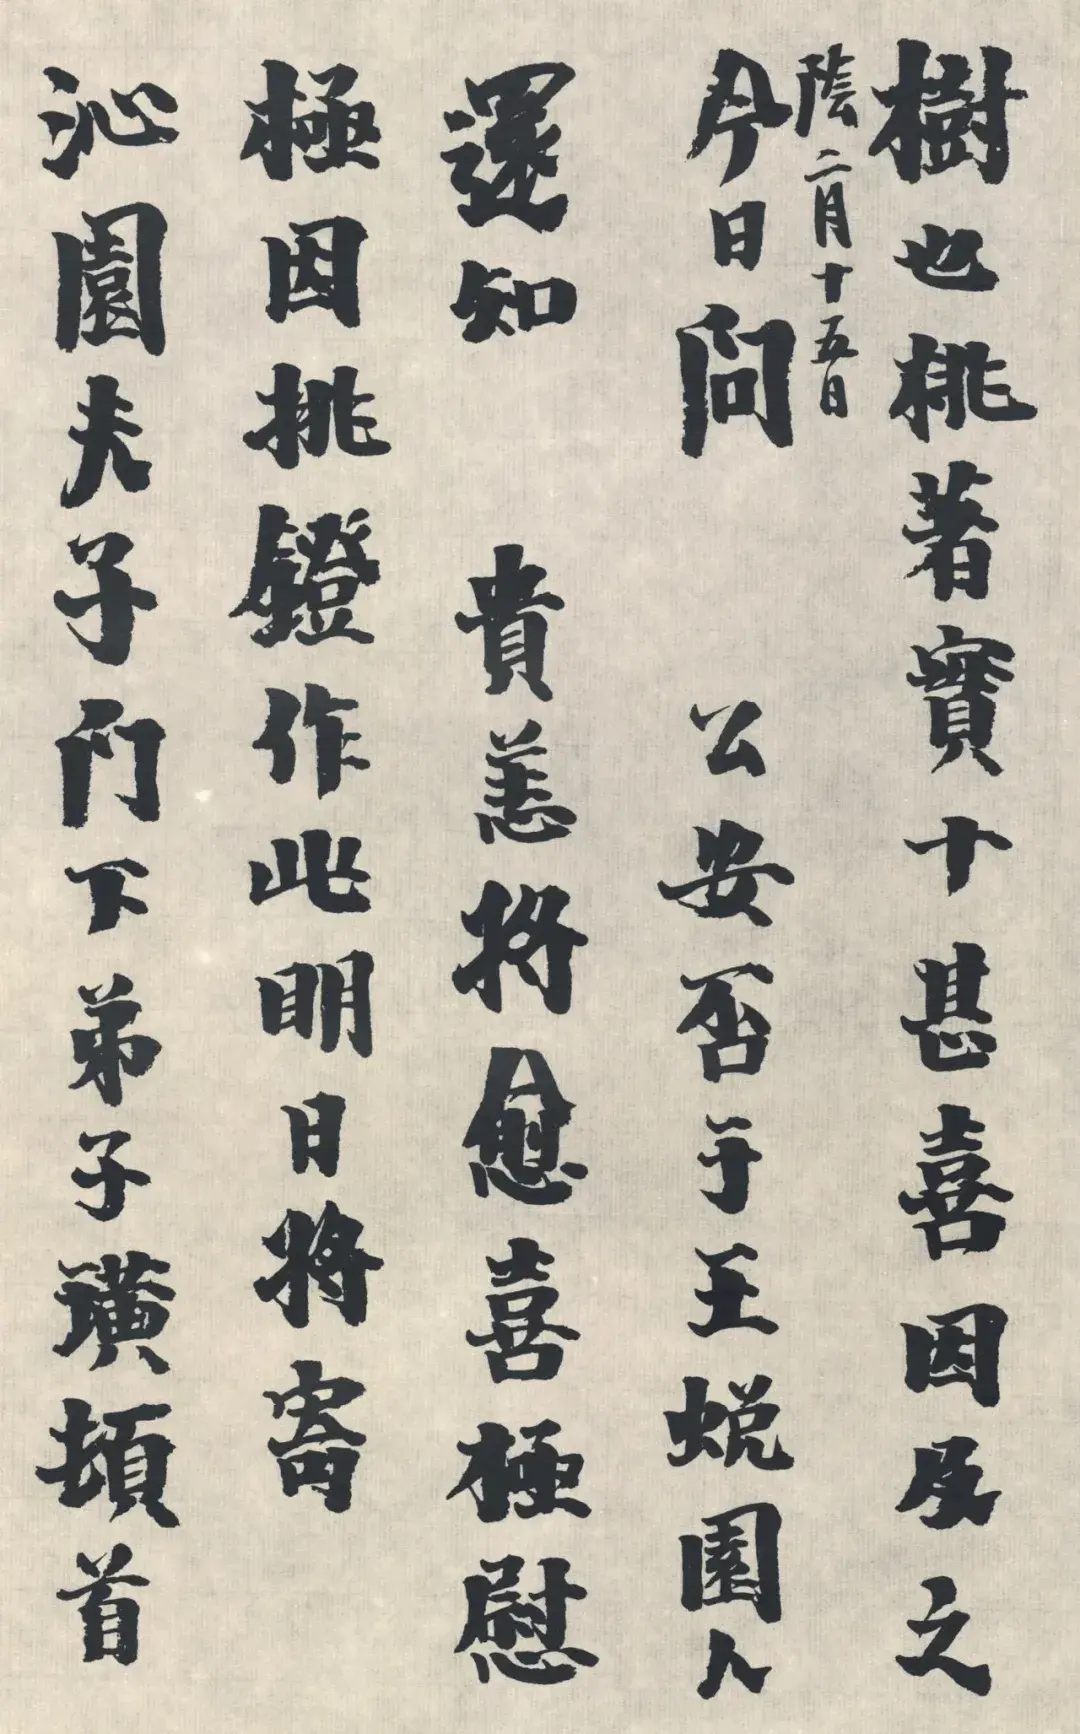 樹也桃著實十甚喜因及之
陰二月十五日
今日問 公安否于王蜕園人
還知 貴恙將愈喜極慰
極因挑鐙作此明日將寄
沁園夫子门下弟子璜頓首